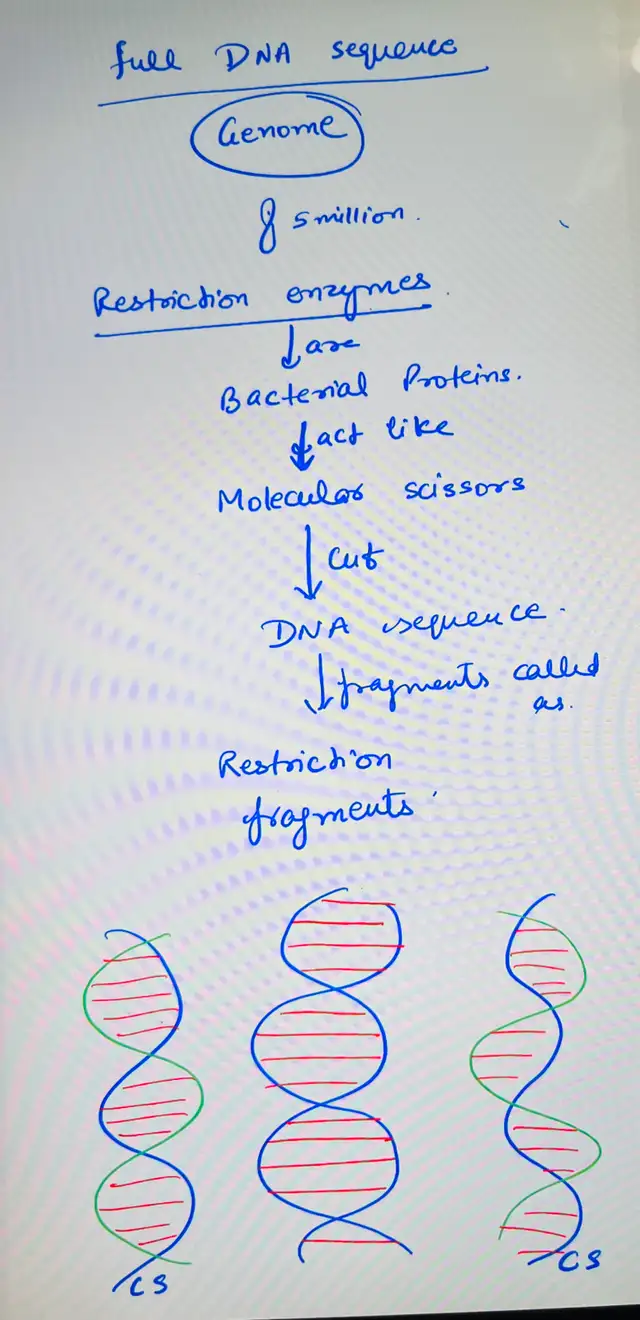 full DNA sequence
Genome
8 5 million.
Restriction enzymes.
are
Bacterial Proteins.
act like
Molecular scissors
Cut
DNA sequence.
fragments called
as.
Restriction
fragments
CS
CS